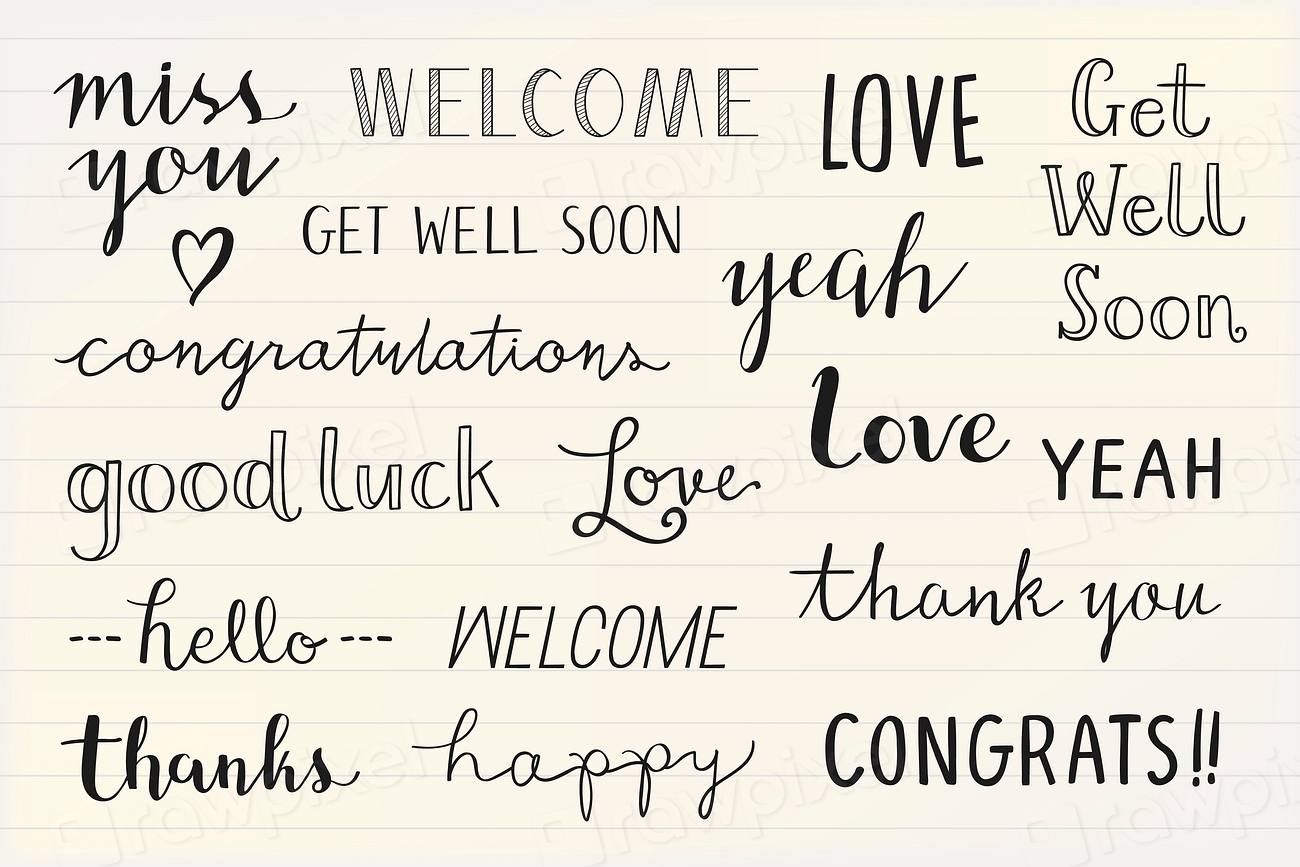 miss
you
WELCOME
LOVE
Get
Well
Soon
GET WELL SOON
yeah
congratulations
love
good luck
Love
YEAH
thank you
---hello---
WELCOME
thanks
happy
CONGRATS!!
rawpixel